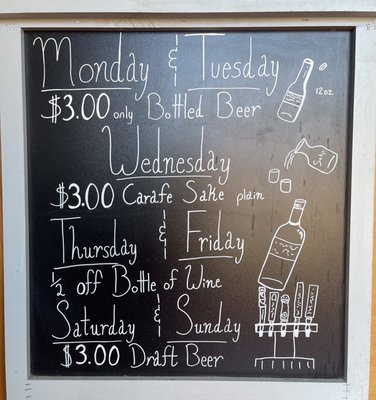 Monday & Tuesday
$3.00 only Bottled Beer
12 oz.
Wednesday
$3.00 Carafe Sake plain
Thursday & Friday
1/2 off Bottle of Wine
Saturday & Sunday
$3.00 Draft Beer